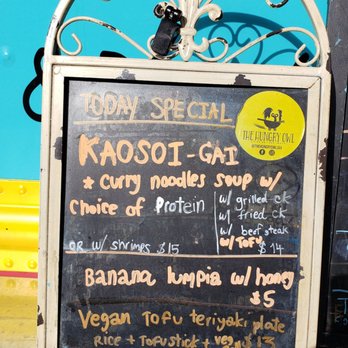 TODAY SPECIAL
THE HUNGRY OWL
KAOSOI-GAI
* Curry noodles soup w/
choice of Protein
w/ grilled ck
w/ fried ck
w/ beef steak
w/ TOFU
$14
OR w/ shrimps $15
Banana lumpia w/ honey
$5
Vegan Tofu teriyaki plate
Rice + Tofu stick + veg $13